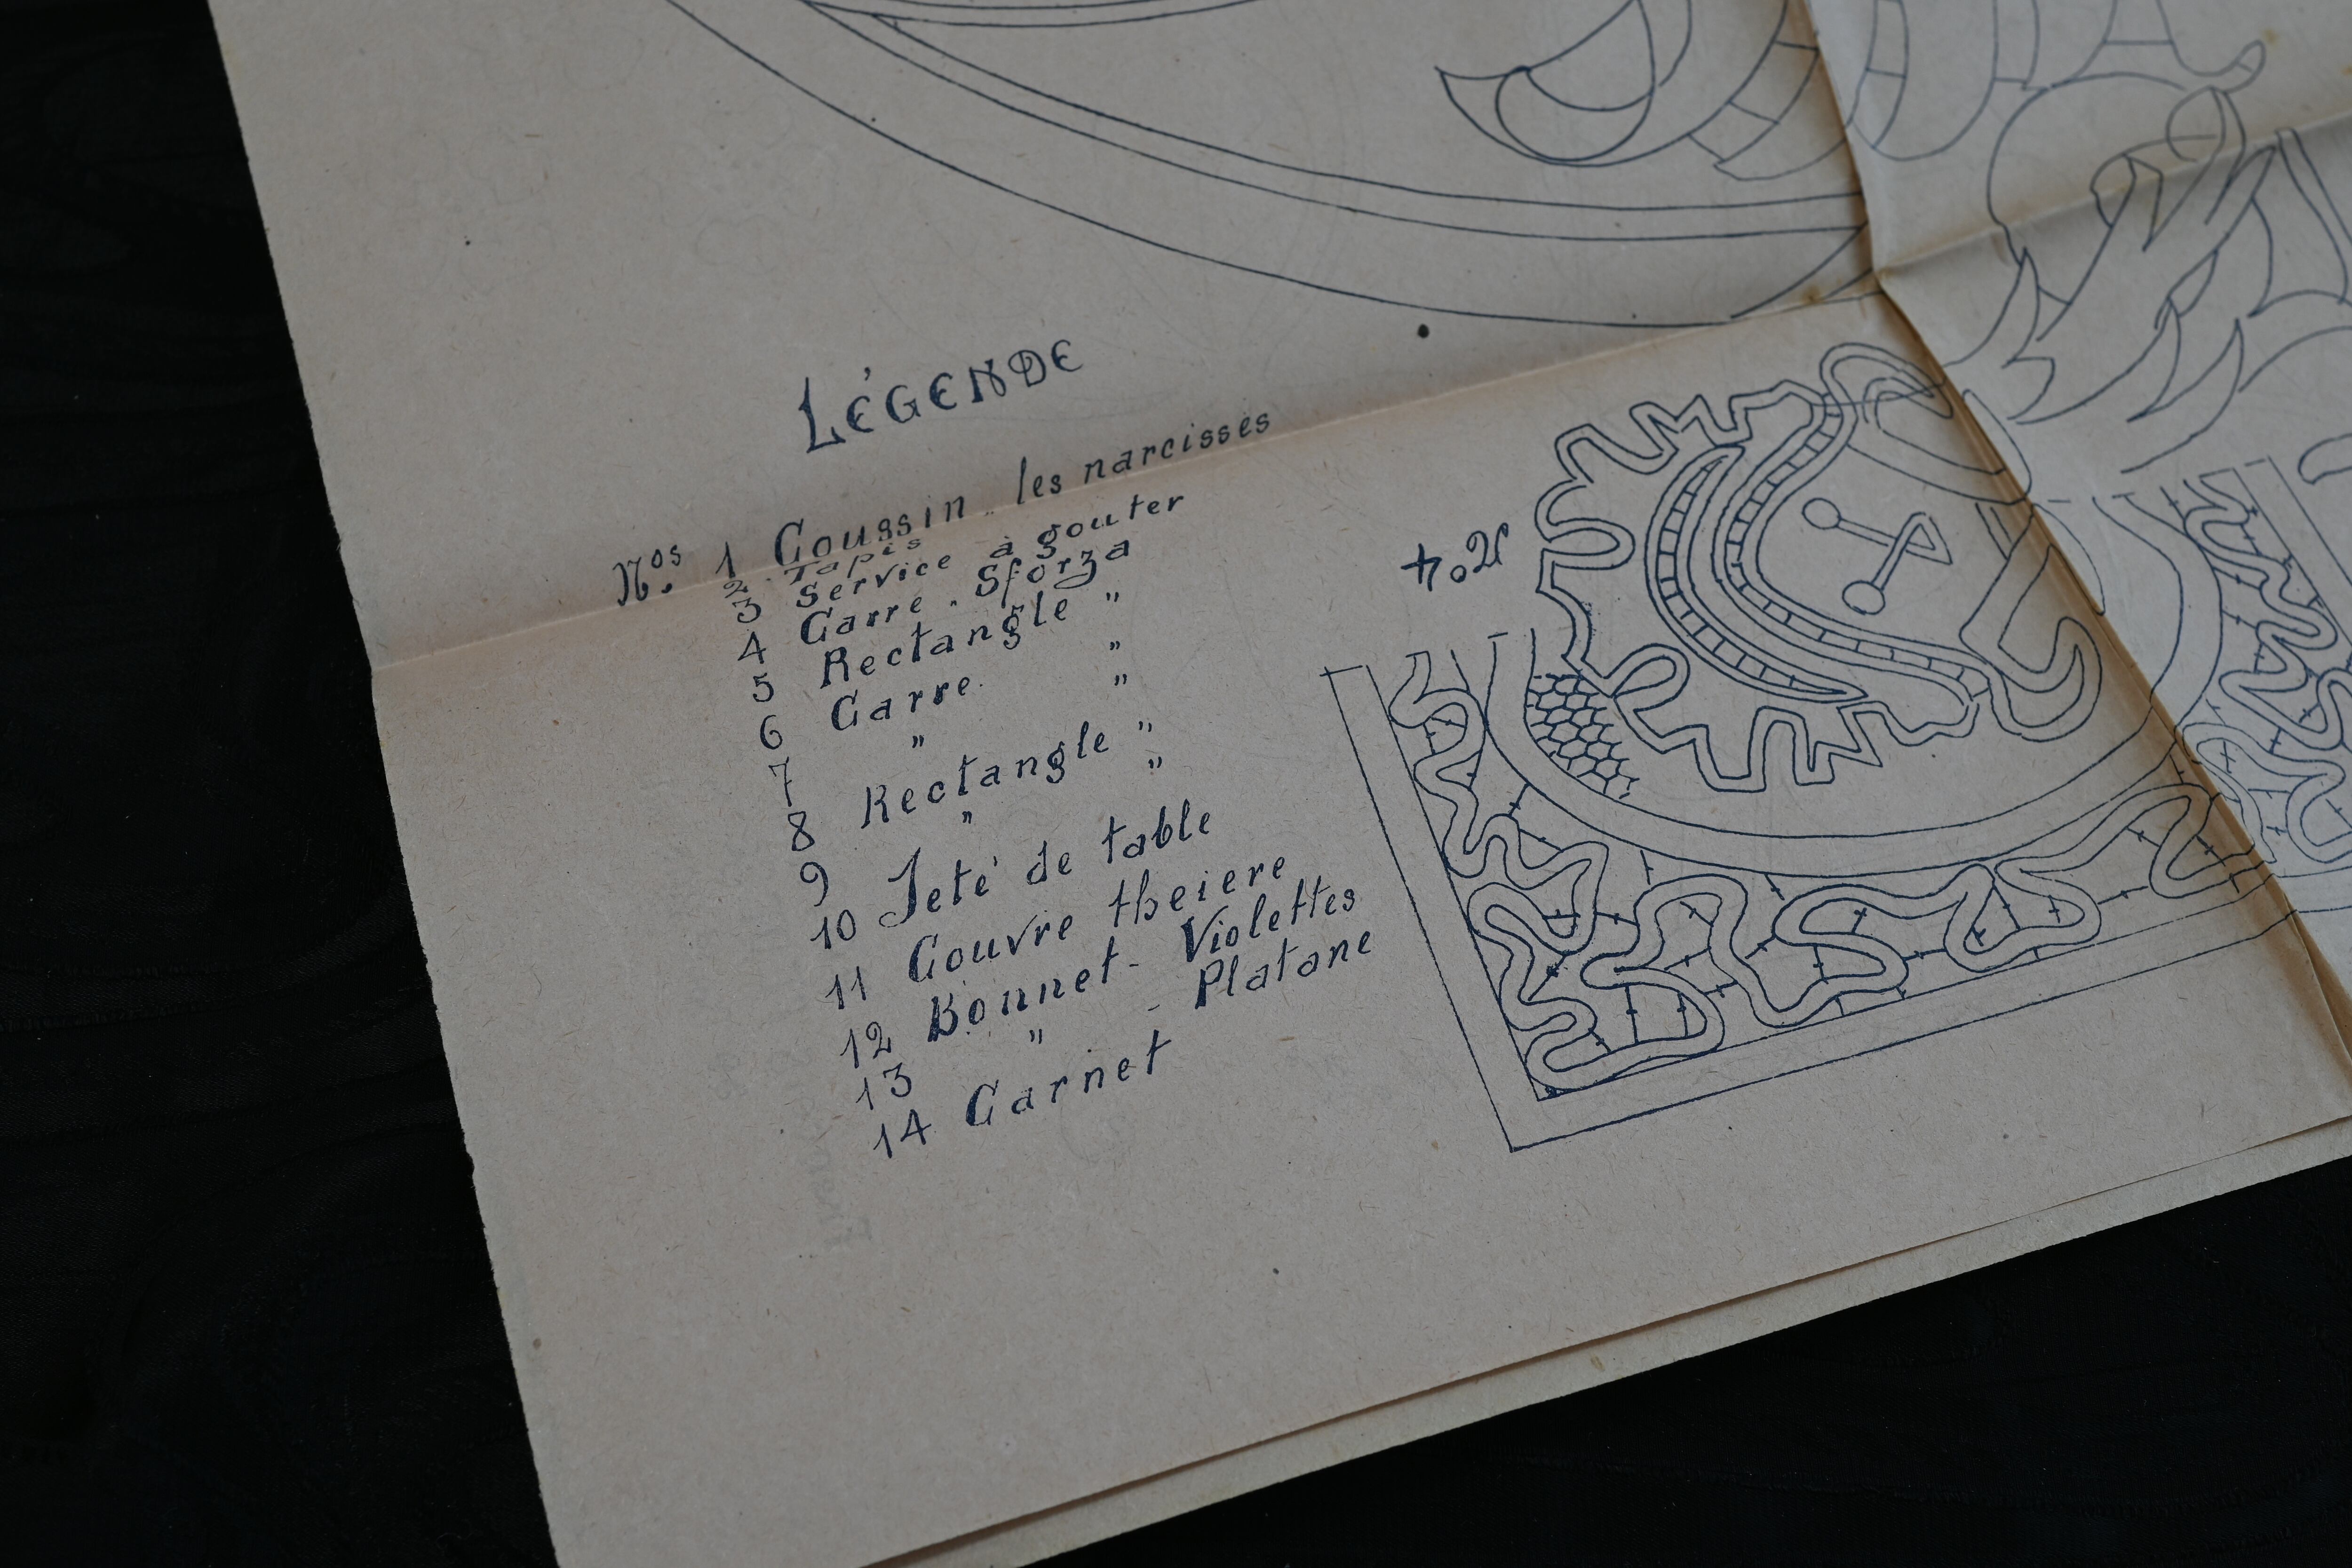 LÉGENDE
Nos 1 Coussin „ les narcisses
2 Tapis
3 Service à gouter
4 Carre „ Sforza
5 Rectangle "
6 Carre "
7 " "
8 Rectangle "
9 " "
10 Jeté de table
11 Couvre theiere
12 Bonnet - Violettes
13 " - Platane
14 Carnet
No 4